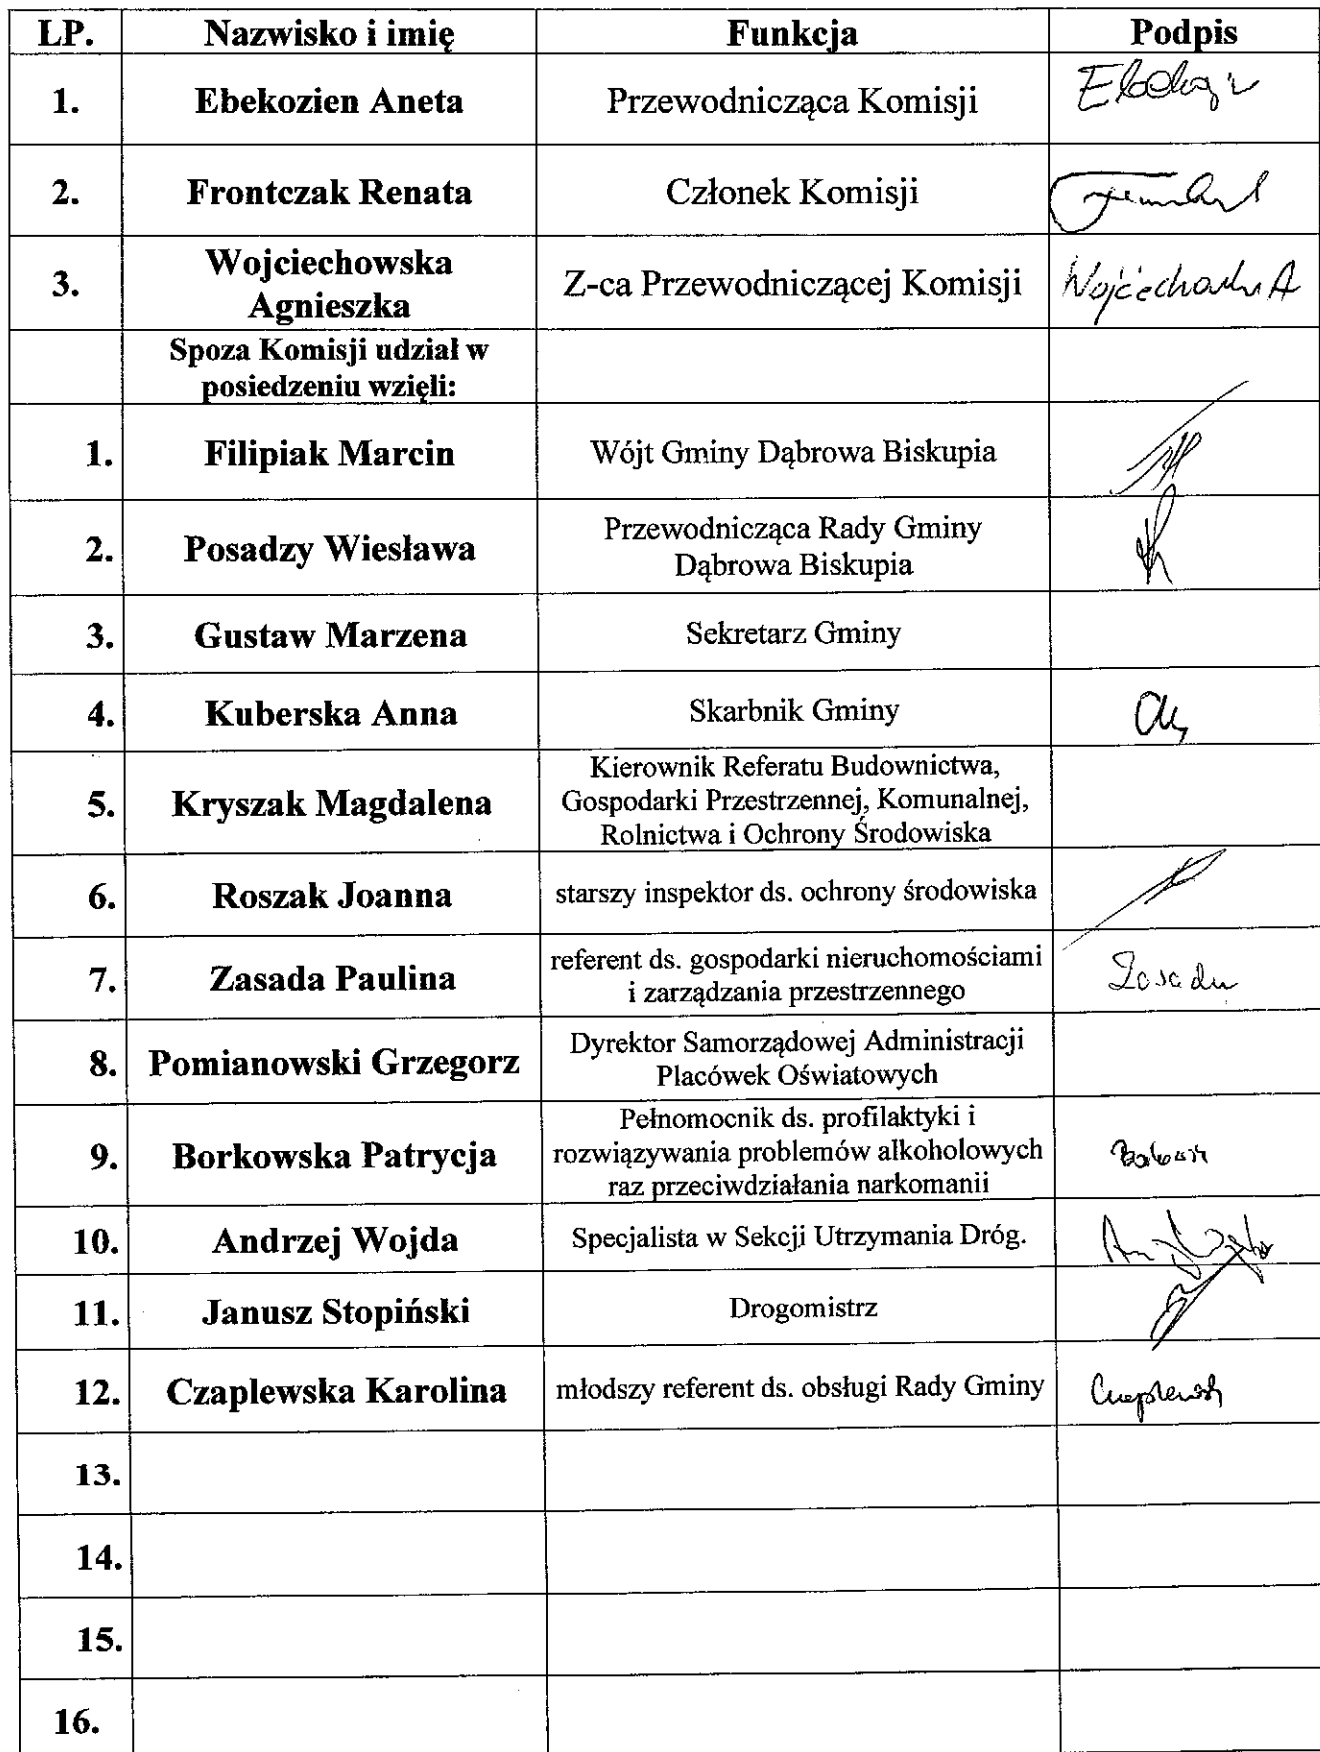 LP. Nazwisko i imię Funkcja Podpis
1. Ebekozien Aneta Przewodnicząca Komisji
2. Frontczak Renata Członek Komisji
Wojciechowska
3. Agnieszka Z-ca Przewodniczącej Komisji Wojciechowska A
Spoza Komisji udział w
posiedzeniu wzięli:
1. Filipiak Marcin Wójt Gminy Dąbrowa Biskupia
2. Posadzy Wiesława Przewodnicząca Rady Gminy
Dąbrowa Biskupia
3. Gustaw Marzena Sekretarz Gminy
4. Kuberska Anna Skarbnik Gminy
5. Kryszak Magdalena Kierownik Referatu Budownictwa,
Gospodarki Przestrzennej, Komunalnej,
Rolnictwa i Ochrony Środowiska
6. Roszak Joanna starszy inspektor ds. ochrony środowiska
7. Zasada Paulina referent ds. gospodarki nieruchomościami
i zarządzania przestrzennego Zasada
8. Pomianowski Grzegorz Dyrektor Samorządowej Administracji
Placówek Oświatowych
9. Borkowska Patrycja Pełnomocnik ds. profilaktyki i
rozwiązywania problemów alkoholowych
raz przeciwdziałania narkomanii
10. Andrzej Wojda Specjalista w Sekcji Utrzymania Dróg.
11. Janusz Stopiński Drogomistrz
12. Czaplewska Karolina młodszy referent ds. obsługi Rady Gminy
13.
14.
15.
16.